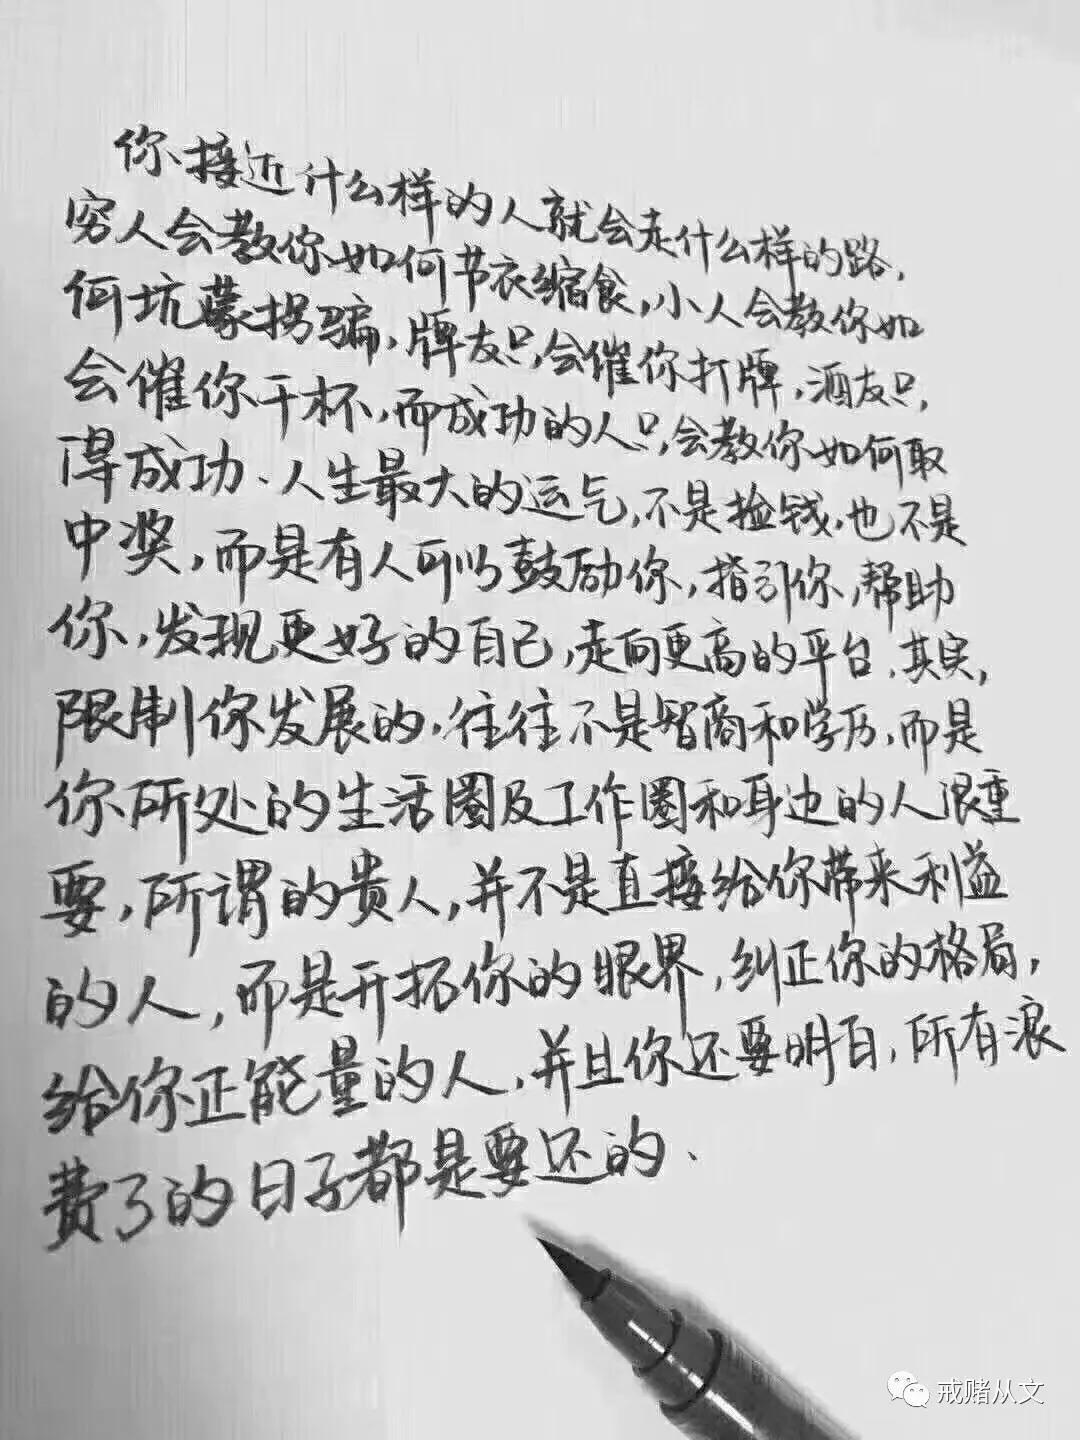 你接近什么样的人就会走什么样的路,
穷人会教你如何节衣缩食,小人会教你如
何坑蒙拐骗,牌友只会催你打牌,酒友只
会催你干杯,而成功的人只会教你如何取
得成功、人生最大的运气,不是捡钱,也不是
中奖,而是有人可以鼓励你,指引你,帮助
你,发现更好的自己,走向更高的平台,其实,
限制你发展的,往往不是智商和学历,而是
你所处的生活圈及工作圈和身边的人很重
要,所谓的贵人,并不是直接给你带来利益
的人,而是开拓你的眼界,纠正你的格局,
给你正能量的人,并且你还要明白,所有浪
费了的日子都是要还的、
戒赌从文